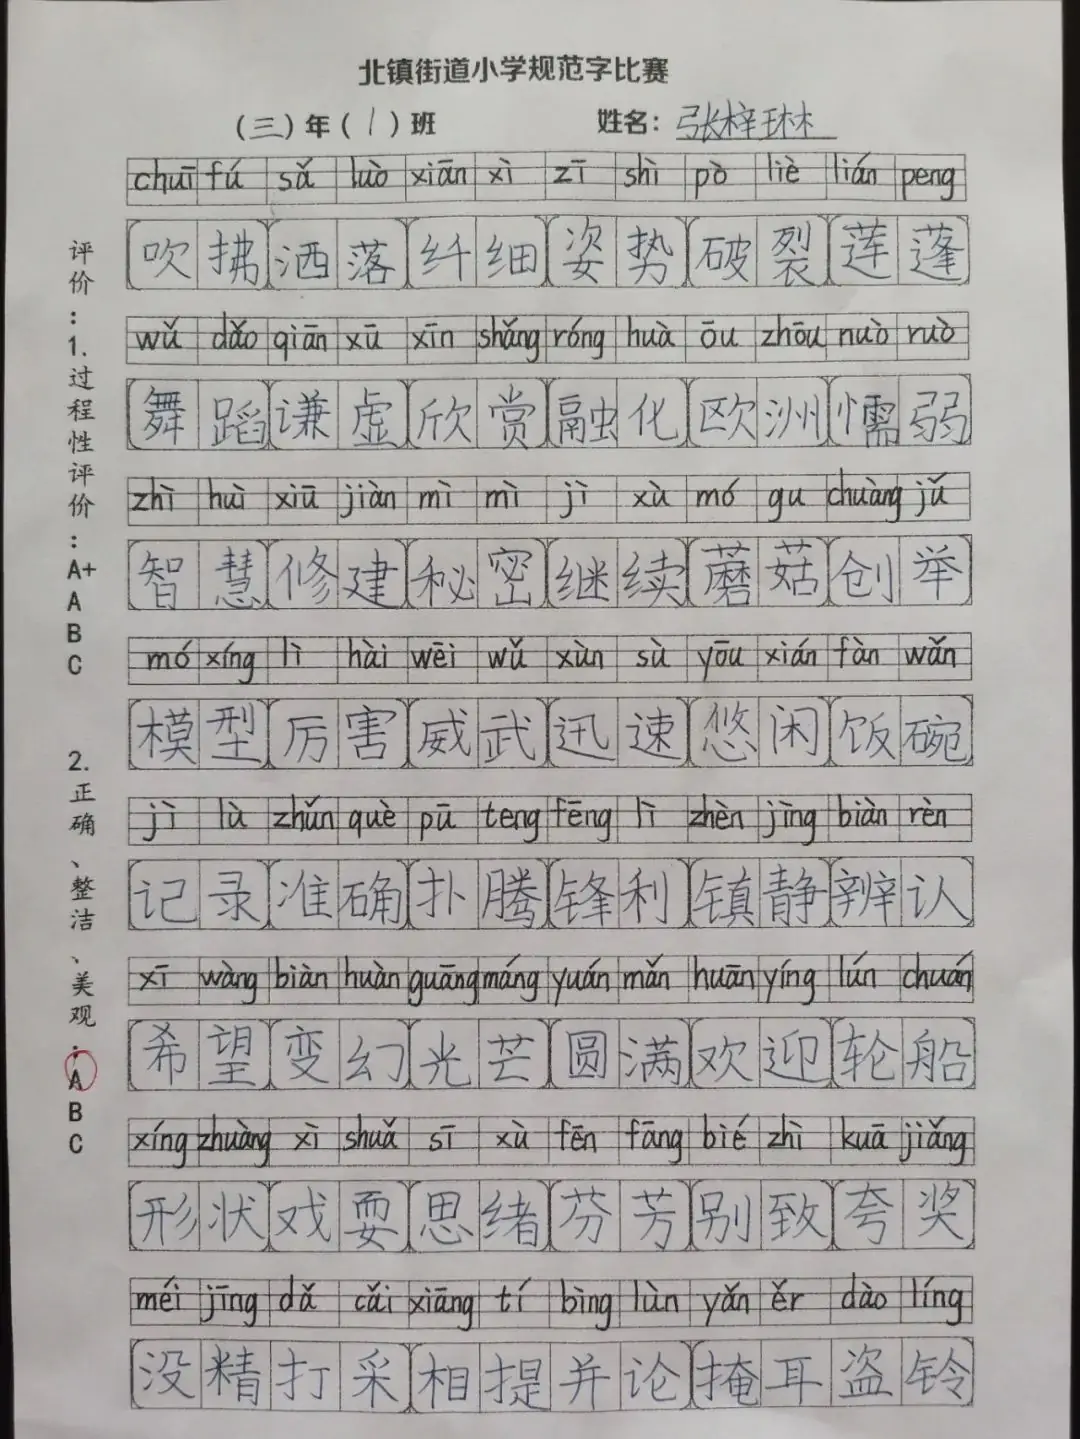 北镇街道小学规范字比赛
(三)年(1)班 姓名：张梓琳
chuī fú sǎ luò xiān xì zī shì pò liè lián peng
吹拂洒落纤细姿势破裂莲蓬
wǔ dǎo qiān xū xīn shǎng róng huà ōu zhōu nuò ruò
舞蹈谦虚欣赏融化欧洲懦弱
zhì huì xiū jiàn mì mì jì xù mó gu chuàng jǔ
智慧修建秘密继续蘑菇创举
mó xíng lì hài wēi wǔ xùn sù yōu xián fàn wǎn
模型厉害威武迅速悠闲饭碗
jì lù zhǔn què pū teng fēng lì zhèn jìng biàn rèn
记录准确扑腾锋利镇静辨认
xī wàng biàn huàn guāng máng yuán mǎn huān yíng lún chuán
希望变幻光芒圆满欢迎轮船
xíng zhuàng xì shuǎ sī xù fēn fāng bié zhì kuā jiǎng
形状戏耍思绪芬芳别致夸奖
méi jīng dǎ cǎi xiāng tí bìng lùn yǎn ěr dào líng
没精打采相提并论掩耳盗铃
评价：1.过程性评价：A+ A B C
2.正确、整洁、美观：A B C